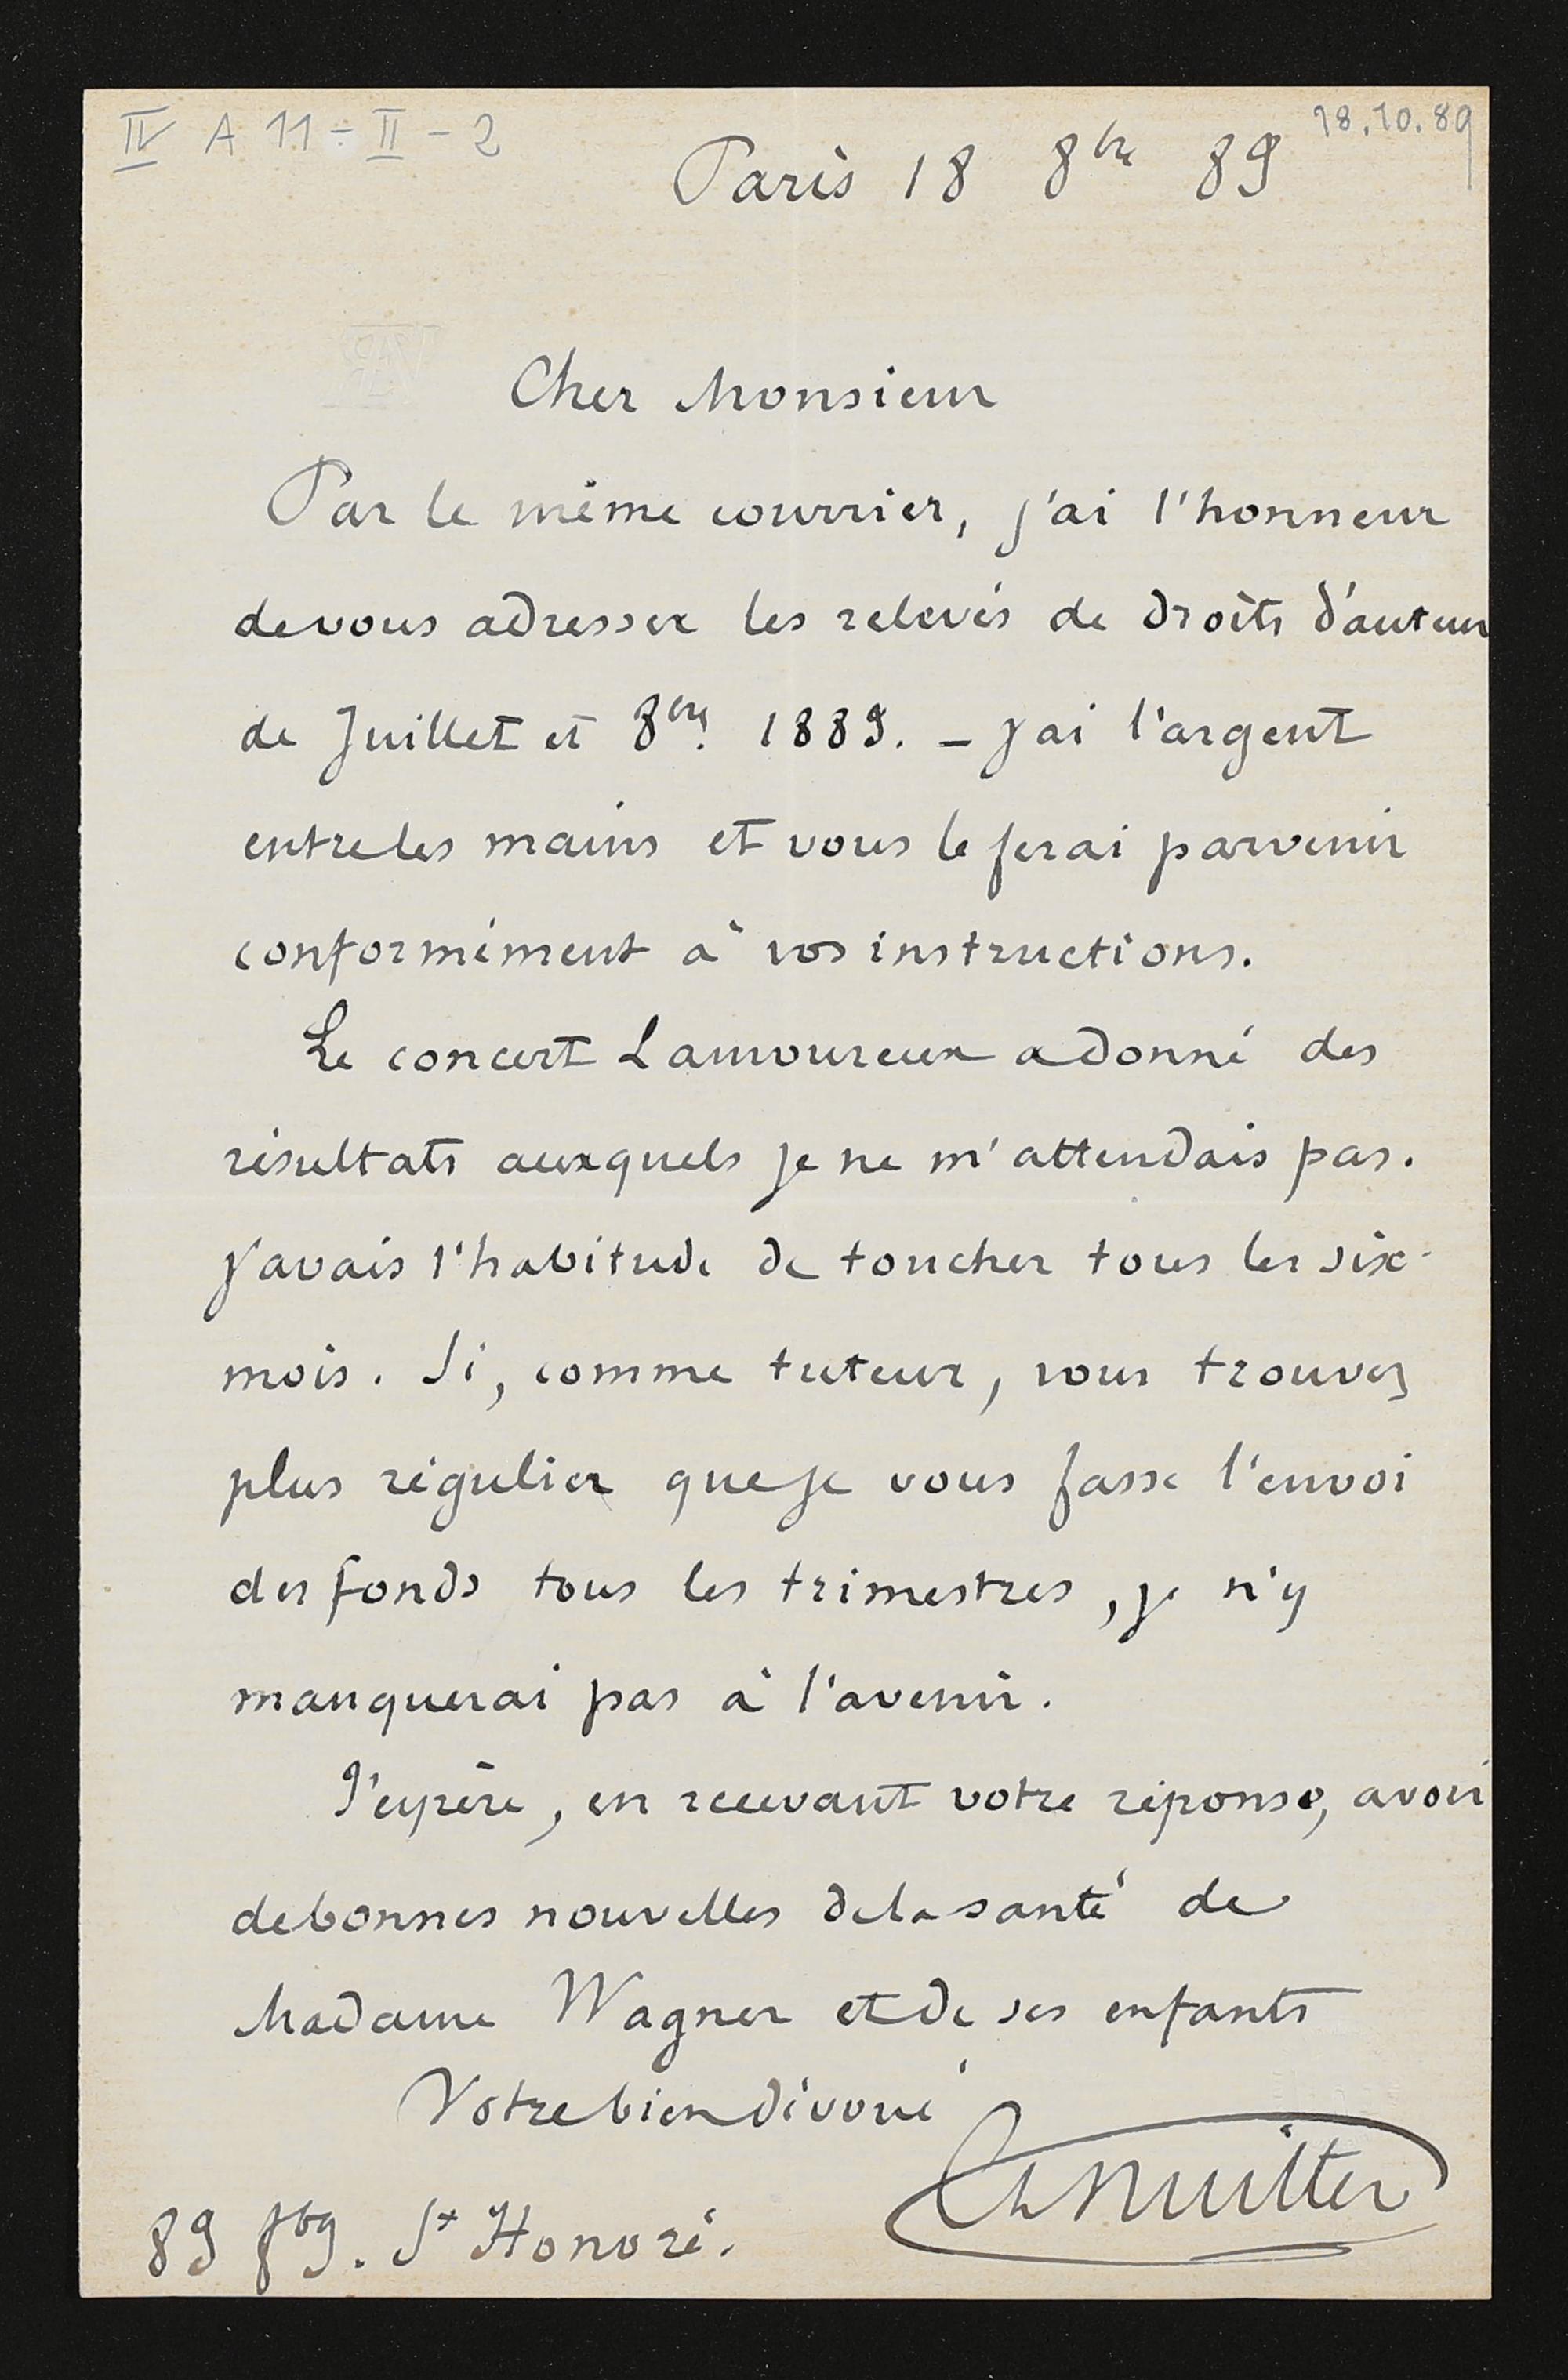 IV A 11 ÷ II - 2
18.10.89
Paris 18 8bre 89
Cher Monsieur
Par le même courrier, j'ai l'honneur
de vous adresser les relevés de droits d'auteur
de Juillet et 8bre. 1889. – J'ai l'argent
entre les mains et vous le ferai parvenir
conformément à vos instructions.
Le concert Lamoureux a donné des
résultats auxquels je ne m'attendais pas.
J'avais l'habitude de toucher tous les six
mois. Si, comme tuteur, vous trouvez
plus régulier que je vous fasse l'envoi
des fonds tous les trimestres, je n'y
manquerai pas à l'avenir.
J'espère, en recevant votre réponse, avoir
de bonnes nouvelles de la santé de
Madame Wagner et de ses enfants
Votre bien dévoué
Ch Nuitter
89 fbg. St Honoré.